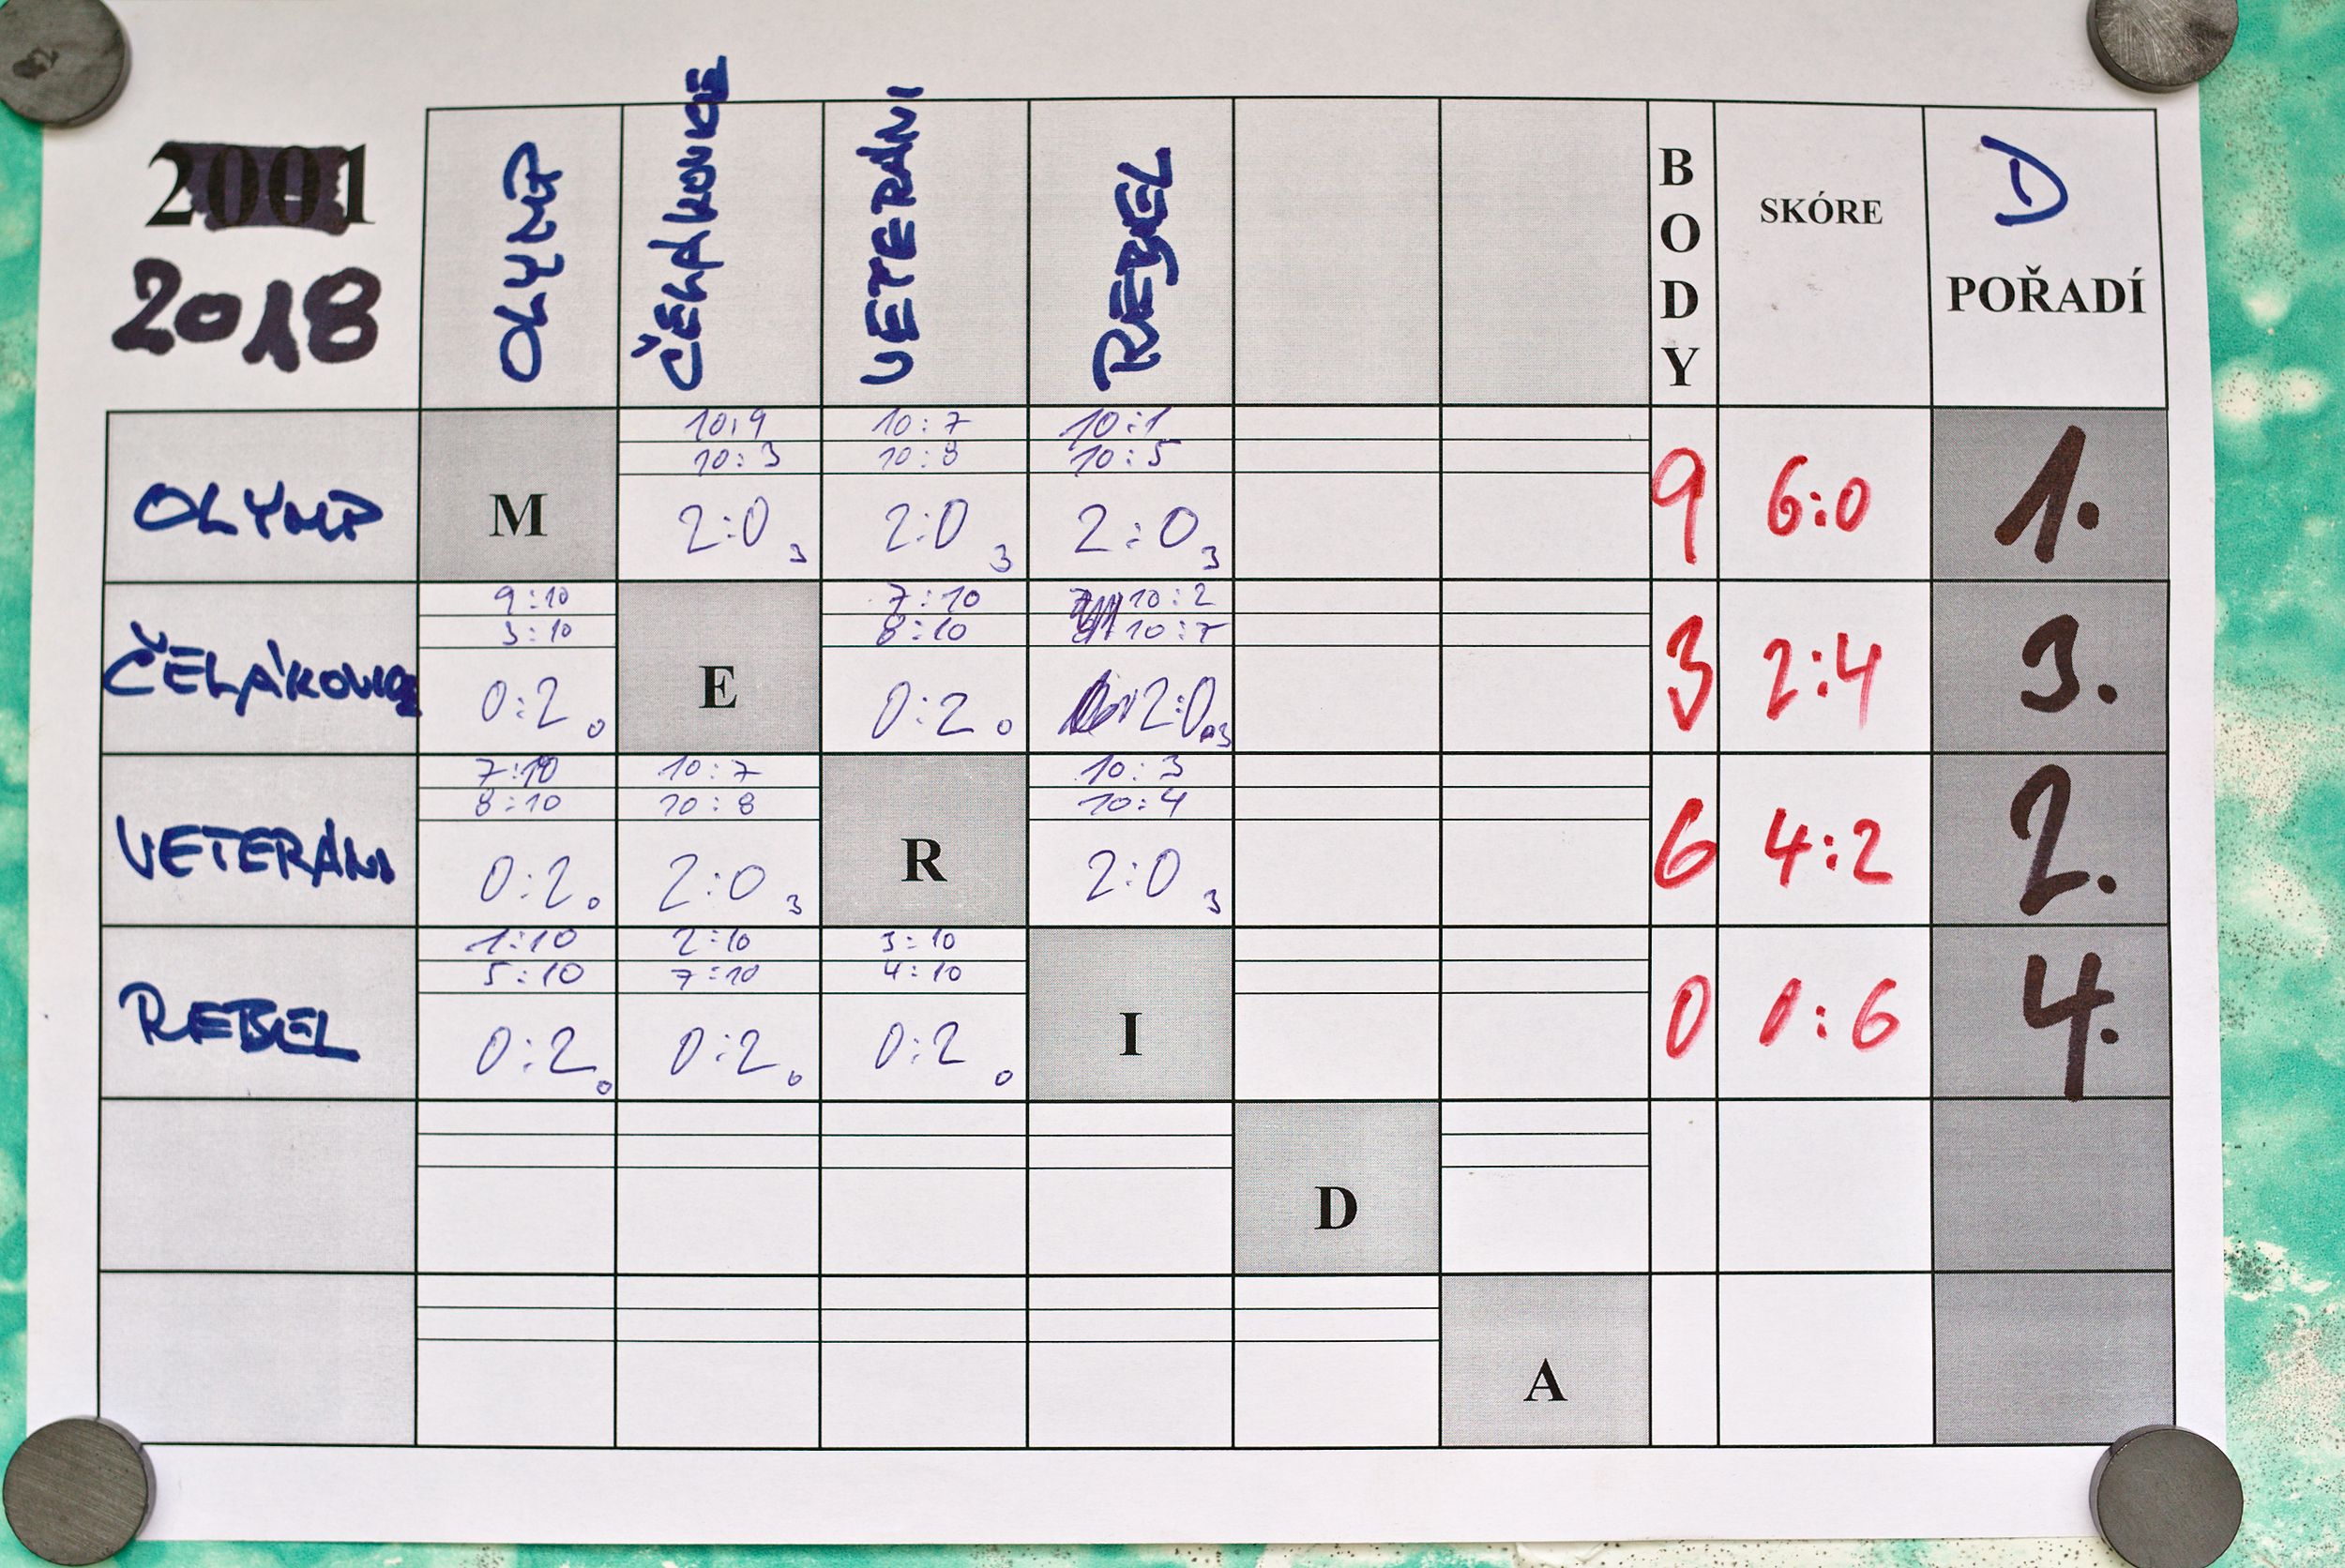 2001
2018
OLYMP
ČELÁKOVICE
VETERÁNI
REBEL
BODY
SKÓRE
D
POŘADÍ
OLYMP
M
10:9
10:3
2:0 3
10:7
10:8
2:0 3
10:1
10:5
2:0 3
9
6:0
1.
ČELÁKOVICE
9:10
3:10
0:2 0
E
7:10
8:10
0:2 0
10:2
10:7
2:0 3
3
2:4
3.
VETERÁNI
7:10
8:10
0:2 0
10:7
10:8
2:0 3
R
10:3
10:4
2:0 3
6
4:2
2.
REBEL
1:10
5:10
0:2 0
2:10
7:10
0:2 0
3:10
4:10
0:2 0
I
0
0:6
4.
D
A